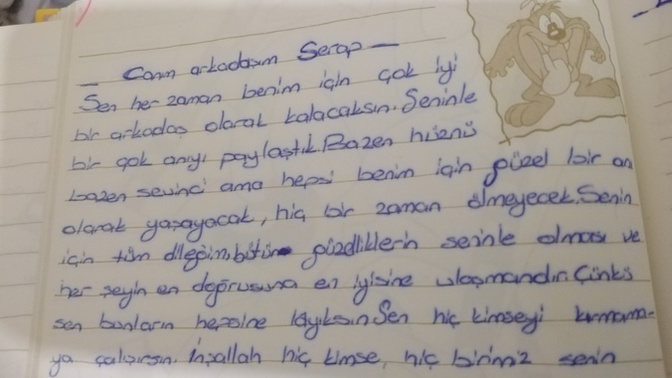 — Canım arkadaşım Serap —
Sen her zaman benim için çok iyi
bir arkadaş olarak kalacaksın. Seninle
bir çok anıyı paylaştık. Bazen hüznü
bazen sevinci ama hepsi benim için güzel bir anı
olarak yaşayacak, hiç bir zaman ölmeyecek. Senin
için tüm dileğim, bütün güzelliklerin seninle olması ve
her şeyin en doğrusuna en iyisine ulaşmandır. Çünkü
sen bunların hepsine layıksın. Sen hiç kimseyi kırmama-
ya çalışırsın. İnşallah hiç kimse, hiç birimiz senin